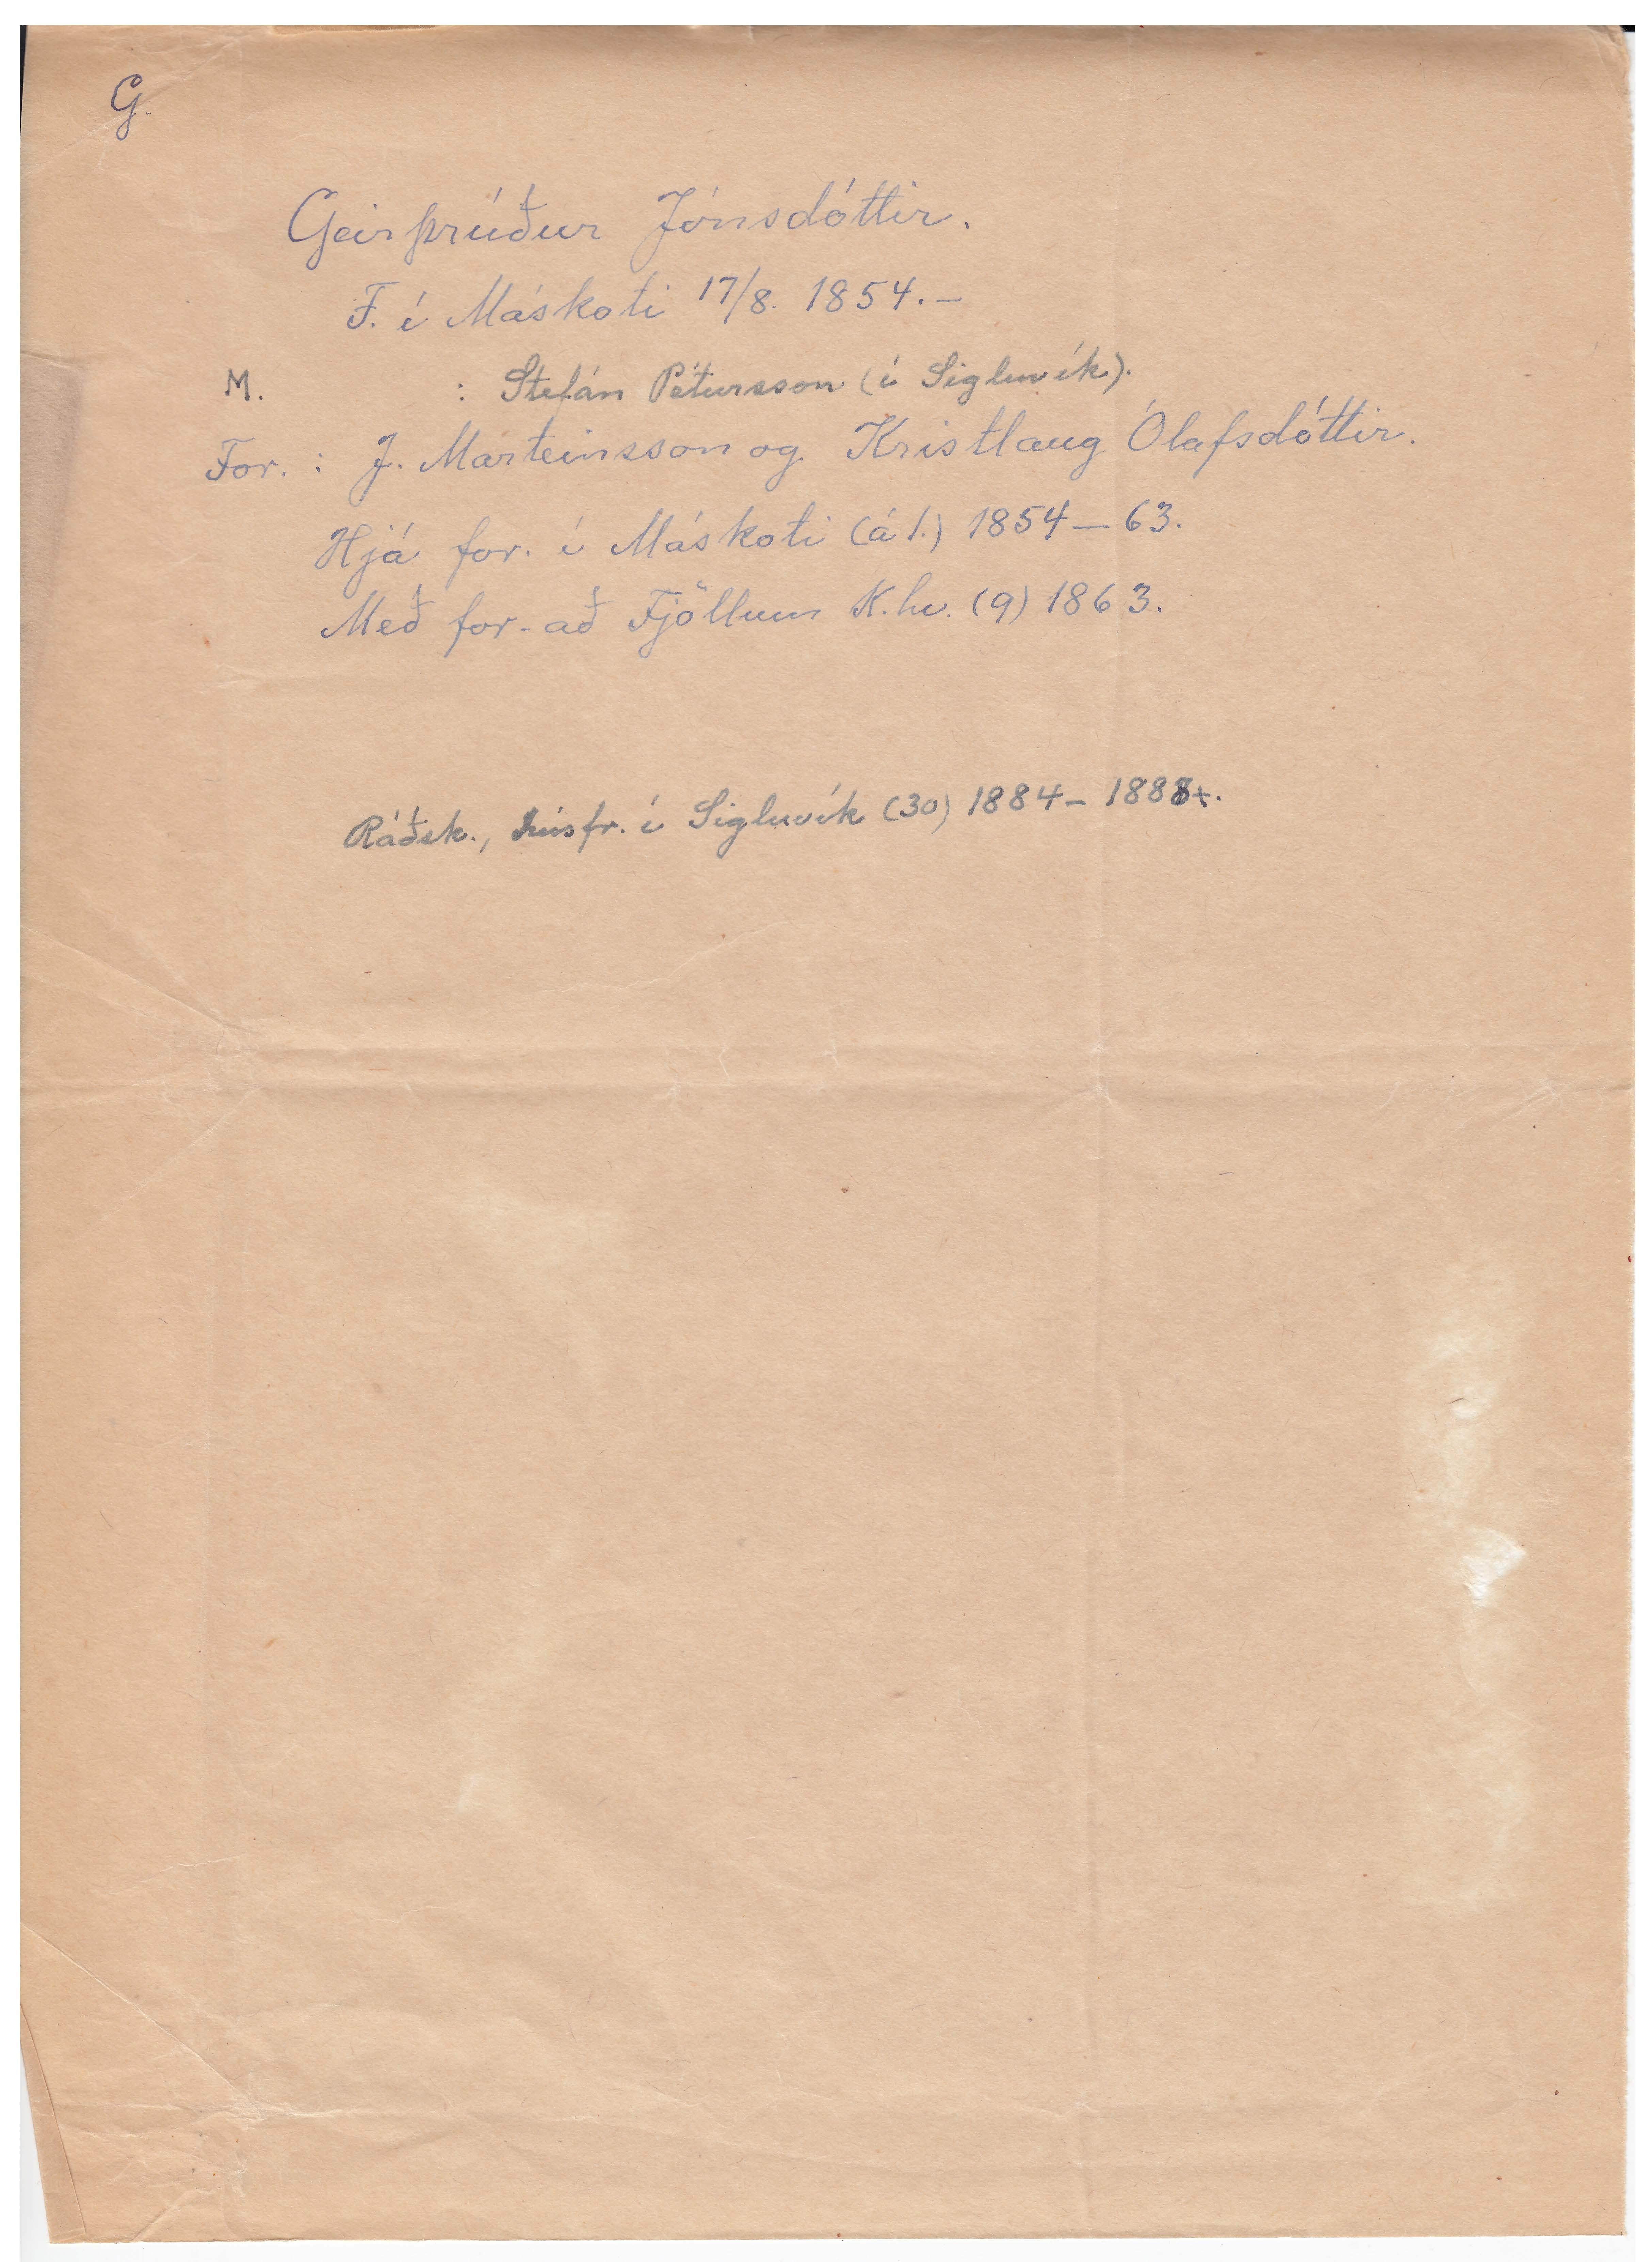 G.
Geirþrúður Jónsdóttir.
F. í Máskoti 17/8. 1854.–
M. : Stefán Pétursson (í Sigluvík).
For. : J. Marteinsson og Kristlaug Ólafsdóttir.
Hjá for. í Máskoti (á 1.) 1854 – 63.
Með for. að Fjöllum K.hv. (9) 1863.
Ráðsk., húsfr. í Sigluvík (30) 1884 – 1888+.